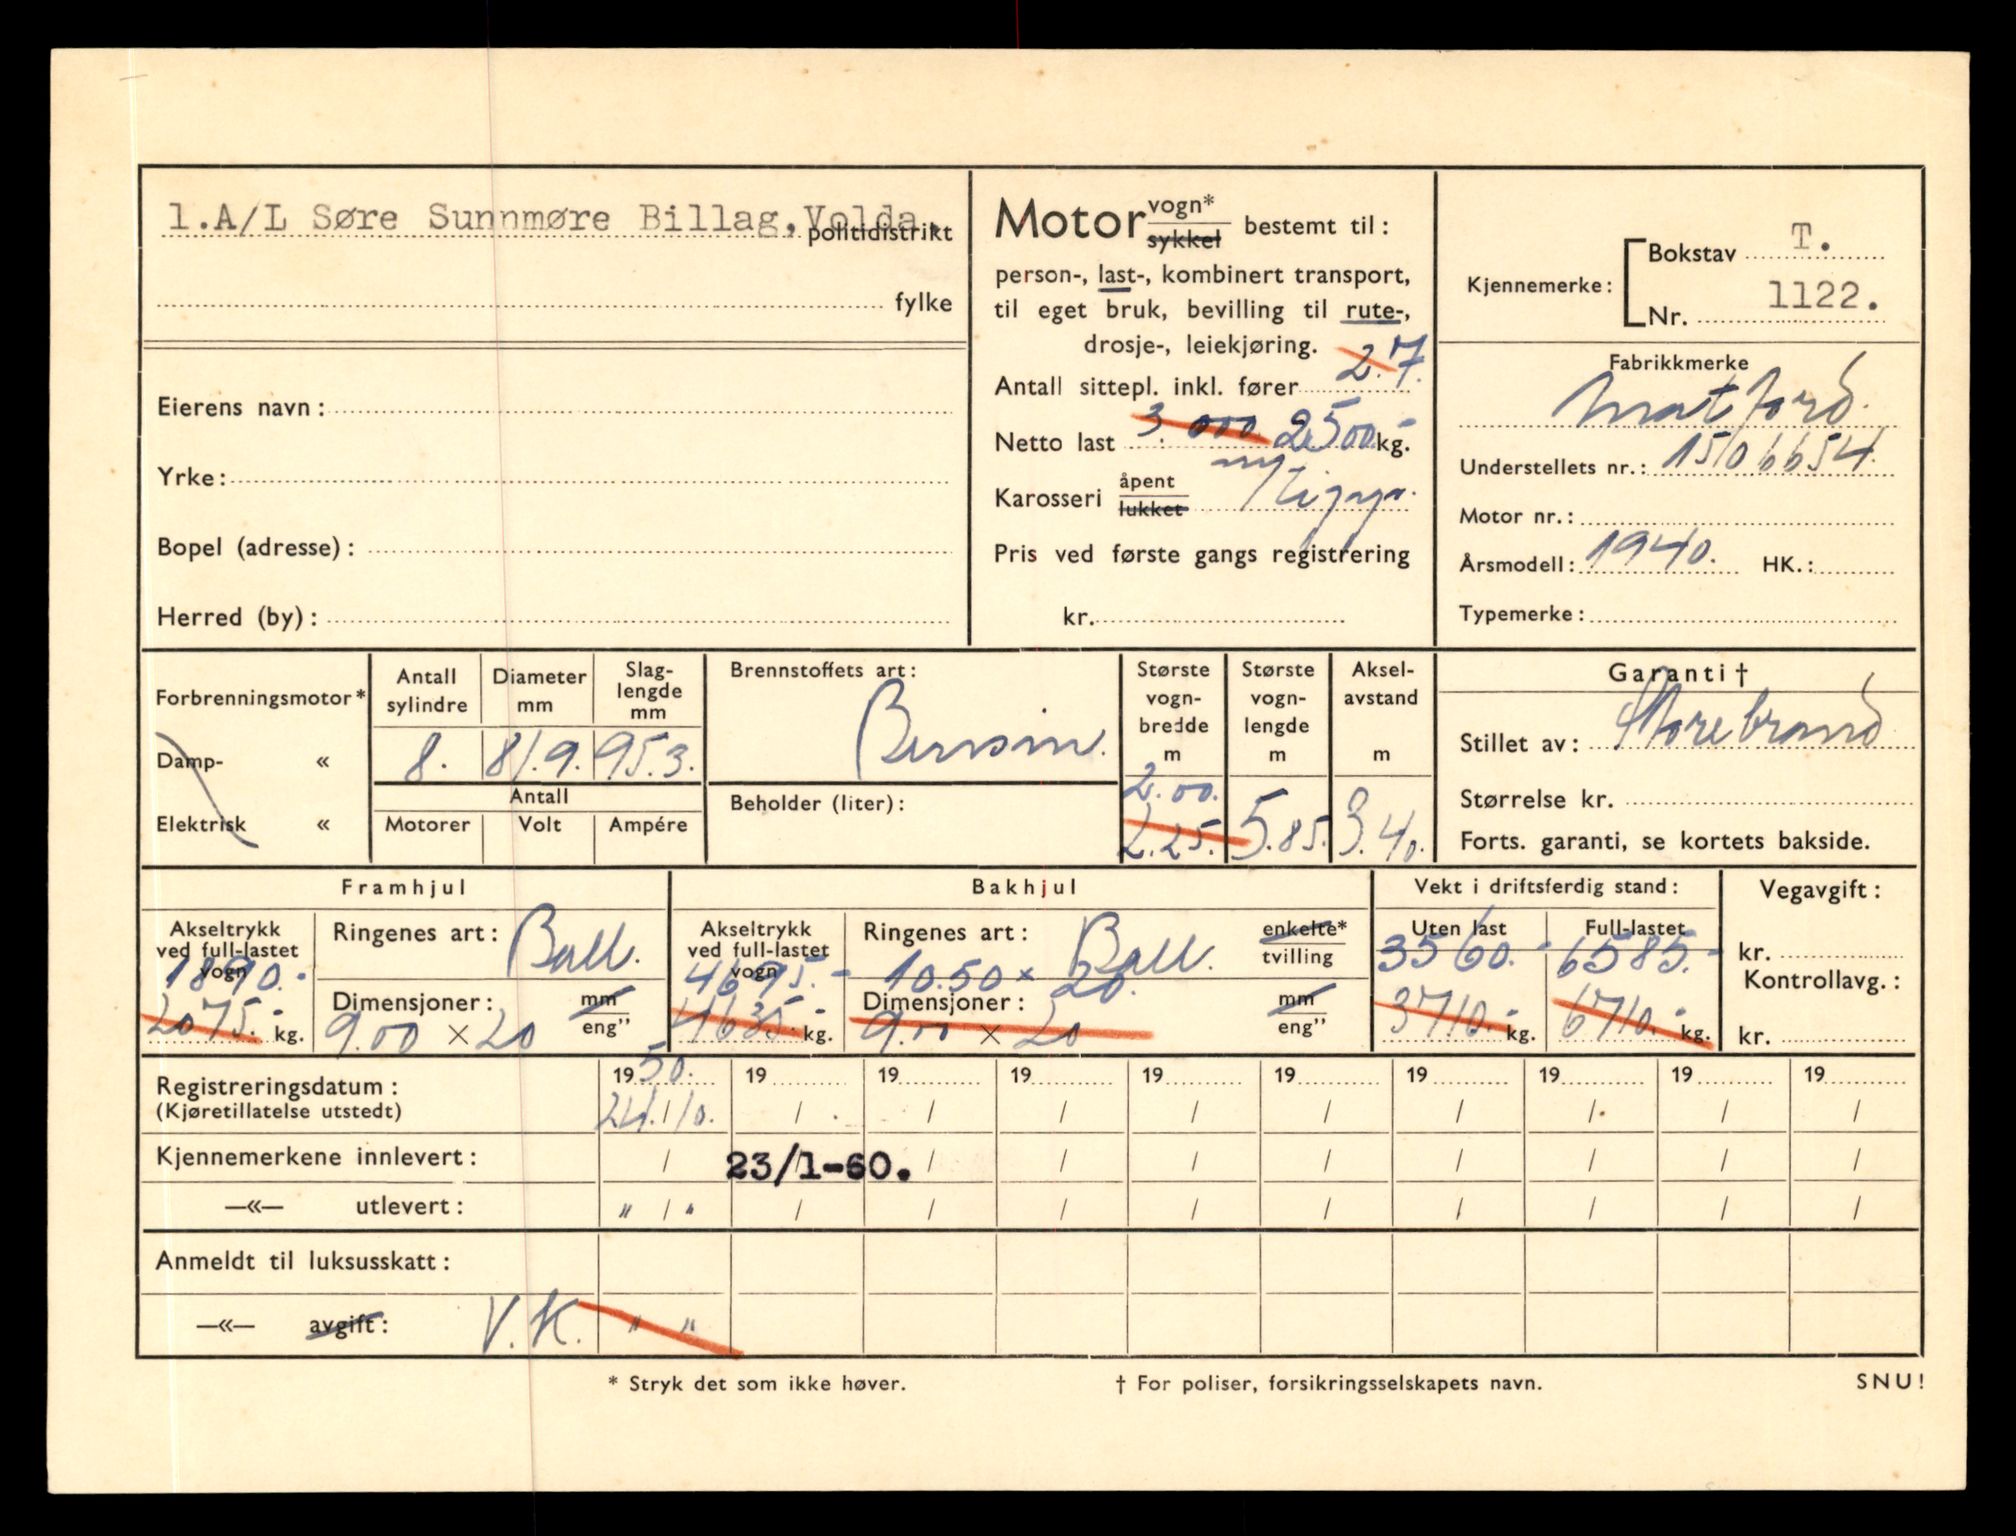 1.A/L Søre Sunnmøre Billag, Volda.
politidistrikt
fylke
Eierens navn:
Yrke:
Bopel (adresse):
Herred (by):
Motor vogn* sykkel bestemt til:
person-, last-, kombinert transport,
til eget bruk, bevilling til rute-,
drosje-, leiekjøring.
Antall sittepl. inkl. fører 2. 7.
Netto last 3.000 2500 kg.
Karosseri åpent lukket ny
Pris ved første gangs registrering
kr.
Kjennemerke: Bokstav T.
Nr. 1122.
Fabrikkmerke
Matford.
Understellets nr.: 1506654.
Motor nr.:
Årsmodell: 1940. HK.:
Typemerke:
Forbrenningsmotor*
Damp- «
Elektrisk «
Antall sylindre
Diameter mm
Slag-lengde mm
8. 81.9. 95.3.
Antall
Motorer Volt Ampére
Brennstoffets art:
Bensin.
Beholder (liter):
Største vogn-bredde m
2.00.
2.25.
Største vogn-lengde m
5.85.
Aksel-avstand m
3.40.
Garanti †
Stillet av: Storebrand
Størrelse kr.
Forts. garanti, se kortets bakside.
Framhjul
Akseltrykk ved full-lastet vogn
1890.-
2075.- kg.
Ringenes art: Ball.
Dimensjoner: mm eng”
9.00 × 20
Bakhjul
Akseltrykk ved full-lastet vogn
4695.-
4635.- kg.
Ringenes art: Ball. enkelte* tvilling
10.50 × 20.
Dimensjoner: mm eng”
9.00 × 20
Vekt i driftsferdig stand:
Uten last Full-lastet
3560.- 6585.-
3710.- kg. 6710.- kg.
Vegavgift:
kr.
Kontrollavg.:
kr.
Registreringsdatum: 1950. 19 19 19 19 19 19 19 19 19
(Kjøretillatelse utstedt) 24./10. / / / / / / / / /
Kjennemerkene innlevert: / 23/1-60. / / / / / / / /
—«— utlevert: " / " / / / / / / / / /
Anmeldt til luksusskatt:
—«— avgift: V.K. " "
* Stryk det som ikke høver.
† For poliser, forsikringsselskapets navn.
SNU!